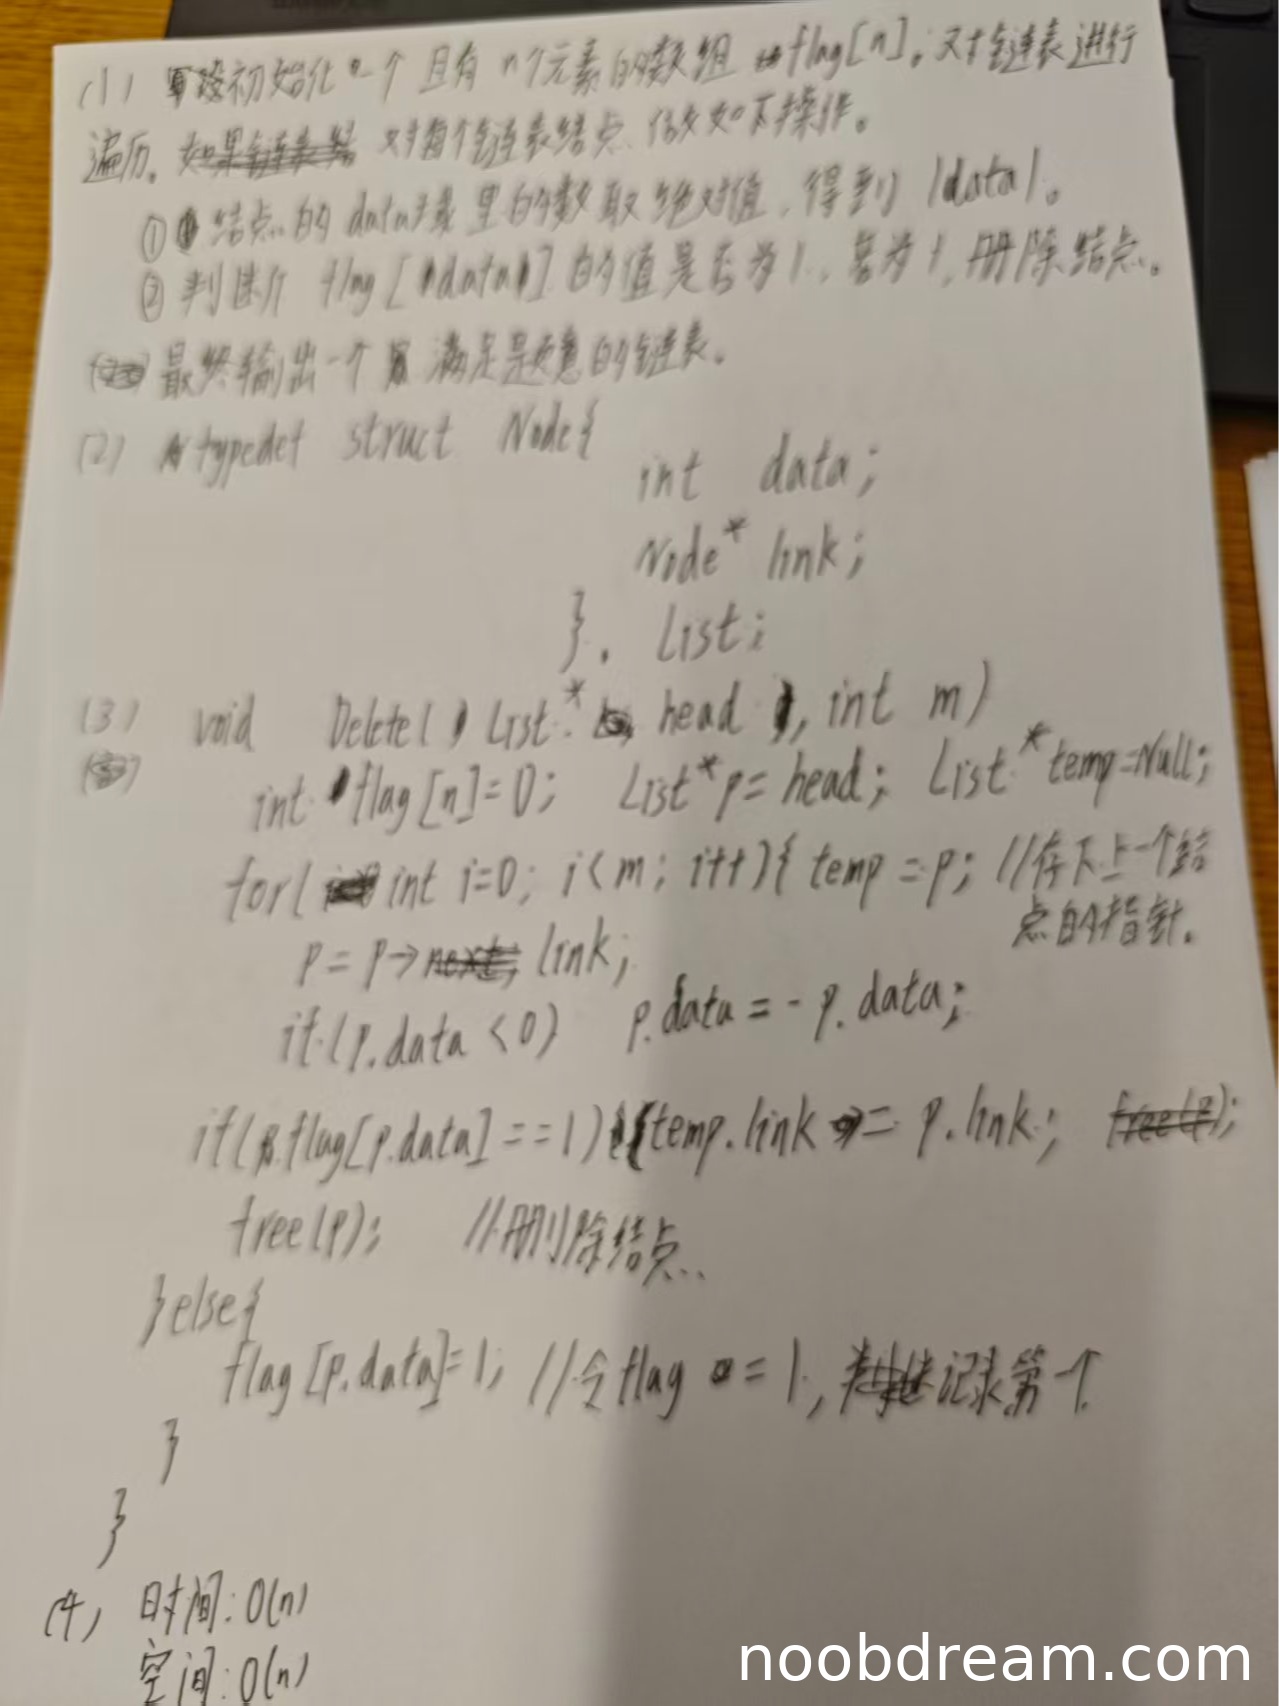 (1) 初始化一个 且有 n个元素的数组 flag[n]。对链表进行
遍历。对每个链表结点、做如下操作。
① 结点的 data域里的数取绝对值，得到 |data|。
② 判断 flag[|data|] 的值是否为1，若为1，删除结点。
最终输出一个满足题意的链表。
(2) typedef struct Node{
int data;
Node* link;
}. List;
(3) void Delete( List * head , int m)
int flag[n]=0; List*p=head; List*temp=Null;
for( int i=0; i<m; i++){ temp=p; //存下上一个结
点的指针。
p=p→link;
if(p.data<0) p.data=-p.data;
if(flag[p.data]==1){temp.link = p.link;
free(p); //删除结点..
}else{
flag[p.data]=1; //令flag =1, 记录第一个
}
}
(4) 时间:O(n)
空间:O(n)
noobdream.com